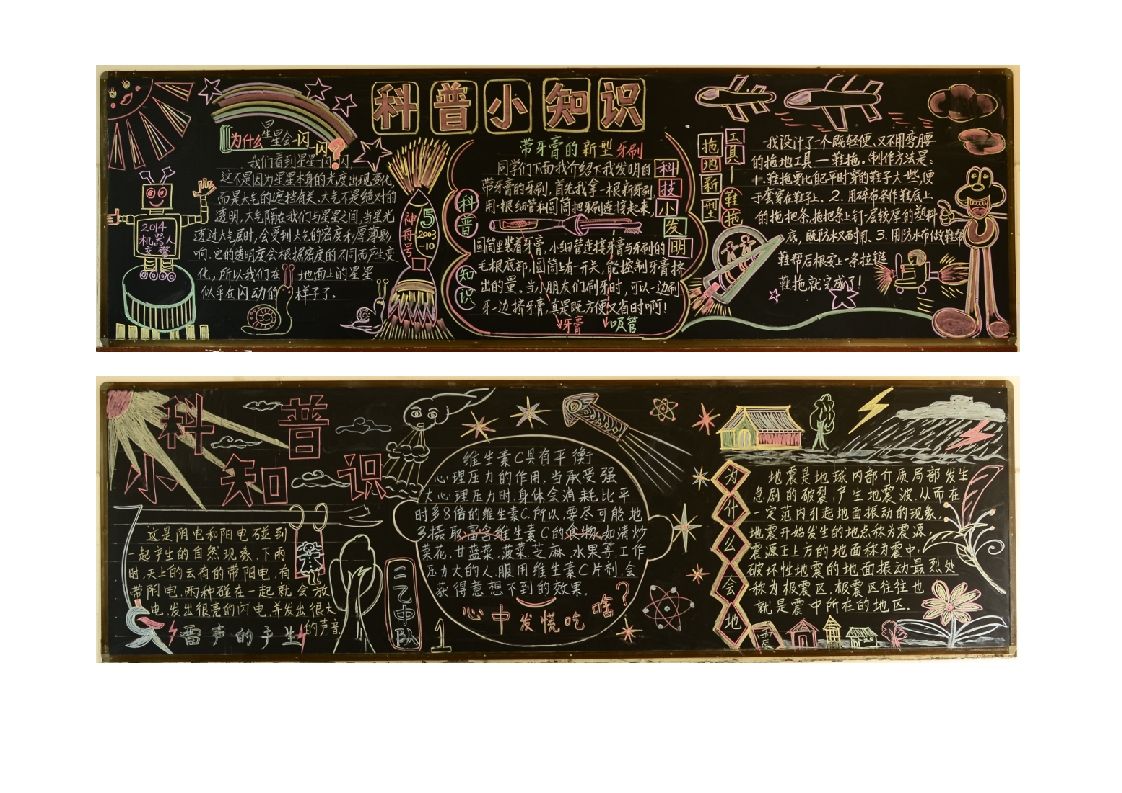 科普小知识
为什么星星会闪闪?
我们看到星星闪闪
这不是因为星星本身的光度出现变化
而是大气的遮挡有关,大气不是绝对的
透明,大气隔在我们与星星之间,当星光
透过大气层时,会受到大气的密度和厚薄影
响.它的透明度会根据密度的不同而产生变
化,所以我们在地面上的星星
似乎在闪动的样子了.
2014
机器人
神舟号
5
2003
10
科普知识
带牙膏的新型牙刷
同学们下面我介绍下我发明的
带牙膏的牙刷,首先我拿一根新牙刷
用一根细管和圆筒把牙刷连接起来
圆筒里装着牙膏,小细管连接牙膏牙刷的
毛根底部,圆筒上有一开关,能控制牙膏挤
出的量,当小朋友们刷牙时,可以一边刷
牙一边挤牙膏,真是既方便又省时啊!
牙膏 吸管
科技小发明
拖地新型
工具—鞋拖
我设计了一个既轻便,又不用弯腰
的拖地工具—鞋拖.制作方法是:
1.鞋拖要比平时穿的鞋子大些,便
于套穿在鞋子上.2.用碎布条作鞋底上
的拖把条,拖把条上钉一层较厚的塑料
底,既防水又耐用.3.用防水布做鞋帮
鞋帮后根定上一条拉链
鞋拖就完成了!
科普
小知识
这是阴电和阳电碰到
一起产生的自然现象.下雨
时,天上的云有的带阳电,有
带阴电,两种碰在一起就会放
电,发出很亮的闪电,并发出很大
的声音
雷声的产生
二乙中队
维生素C具有平衡
心理压力的作用.当承受强
大心理压力时,身体会消耗比平
时多8倍的维生素C.所以,要尽可能地
多摄取富含维生素C的食物,如清炒
菜花.甘蓝菜.菠菜.芝麻.水果等.工作
压力大的人,服用维生素C片剂,会
获得意想不到的效果.
心中发慌吃啥?
为什么会地
地震是地球内部介质局部发生
急剧的破裂,产生地震波,从而在
一定范围内引起地面振动的现象.
地震开始发生的地点称为震源,
震源正上方的地面称为震中.
破坏性地震的地面振动最烈处
称为极震区,极震区往往也
就是震中所在的地区.